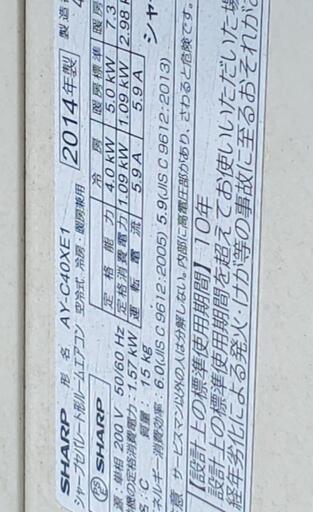 SHARP 形 名 AY-C40XE1
シャープセパレート形ルームエアコン 空冷式 冷房・暖房兼用 2014年製 製造
PSE SHARP
冷 房 暖房標準 暖房
定 格 能 力 4.0 kW 5.0 kW
定格消費電力 1.09 kW 1.09 kW 2.98
運 転 電 流 5.9 A 5.9 A
源 : 単相 200 V 50/60 Hz
定格消費電力 : 1.57 kW
: C 質 量 : 15 kg シャ
ネルギー消費効率 : 6.0(JIS C 9612:2005) 5.9(JIS C 9612:2013)
意 サービスマン以外の人は分解しない。内部に高電圧部があり、さわると危険です。
【設計上の標準使用期間】 10年
設計上の標準使用期間を超えてお使いいただいた場
経年劣化による発火・けが等の事故に至るおそれが